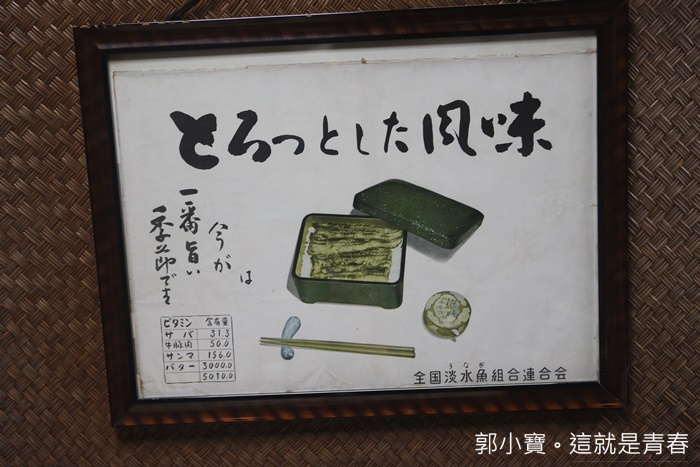 とろっとした風味
今が
一番旨い
季節です
ビタミン 含有量
サバ 31.3
牛豚肉 50.0
サンマ 156.0
バター 3000.0
5010.0
うなぎ
全国淡水魚組合連合会
郭小寶。這就是青春